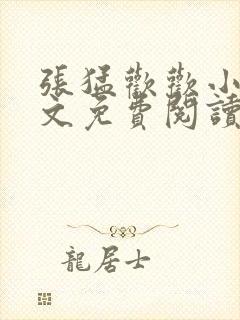 張猛歡歡小
文免費閱讀
龍居士